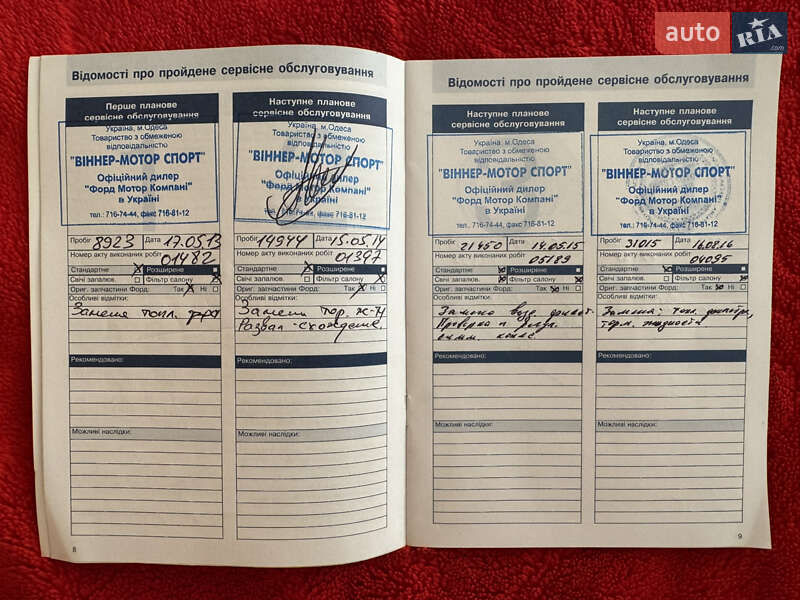 auto RIA .com
Відомості про пройдене сервісне обслуговування
Перше планове
сервісне обслуговування
Україна, м.Одеса
Товариство з обмеженою
відповідальністю
"ВІННЕР-МОТОР СПОРТ"
Офіційний дилер
"Форд Мотор Компані"
в Україні
тел.: 716-74-44, факс 716-81-12
Пробіг 8923 Дата 17.05.13
Номер акту виконаних робіт
01482
Стандартне Розширене
Свічі запалюв. Фільтр салону
Ориг. запчастини Форд: Так Ні
Особливі відмітки:
Замена топл.
Рекомендовано:
Можливі наслідки:
8
Наступне планове
сервісне обслуговування
Україна, м.Одеса
Товариство з обмеженою
відповідальністю
"ВІННЕР-МОТОР СПОРТ"
Офіційний дилер
"Форд Мотор Компані"
в Україні
тел.: 716-74-44, факс 716-81-12
Пробіг 19944 Дата 15.05.14
Номер акту виконаних робіт
01397
Стандартне Розширене
Свічі запалюв. Фільтр салону
Ориг. запчастини Форд: Так Ні
Особливі відмітки:
Замена тор. ж-ти
Развал-схождение.
Рекомендовано:
Можливі наслідки:
Відомості про пройдене сервісне обслуговування
Наступне планове
сервісне обслуговування
Україна, м.Одеса
Товариство з обмеженою
відповідальністю
"ВІННЕР-МОТОР СПОРТ"
Офіційний дилер
"Форд Мотор Компані"
в Україні
тел.: 716-74-44, факс 716-81-12
Пробіг 21450 Дата 14.05.15
Номер акту виконаних робіт
05189
Стандартне Розширене
Свічі запалюв. Фільтр салону
Ориг. запчастини Форд: Так Ні
Особливі відмітки:
Замена
Проверка и
Рекомендовано:
Можливі наслідки:
Наступне планове
сервісне обслуговування
Україна, м.Одеса
Товариство з обмеженою
відповідальністю
"ВІННЕР-МОТОР СПОРТ"
Офіційний дилер
"Форд Мотор Компані"
в Україні
тел.: 716-74-44, факс 716-81-12
Пробіг 31015 Дата 16.08.16
Номер акту виконаних робіт
04095
Стандартне Розширене
Свічі запалюв. Фільтр салону
Ориг. запчастини Форд: Так Ні
Особливі відмітки:
Замена: топл. фильтра,
торм. жидкости
Рекомендовано:
Можливі наслідки:
9